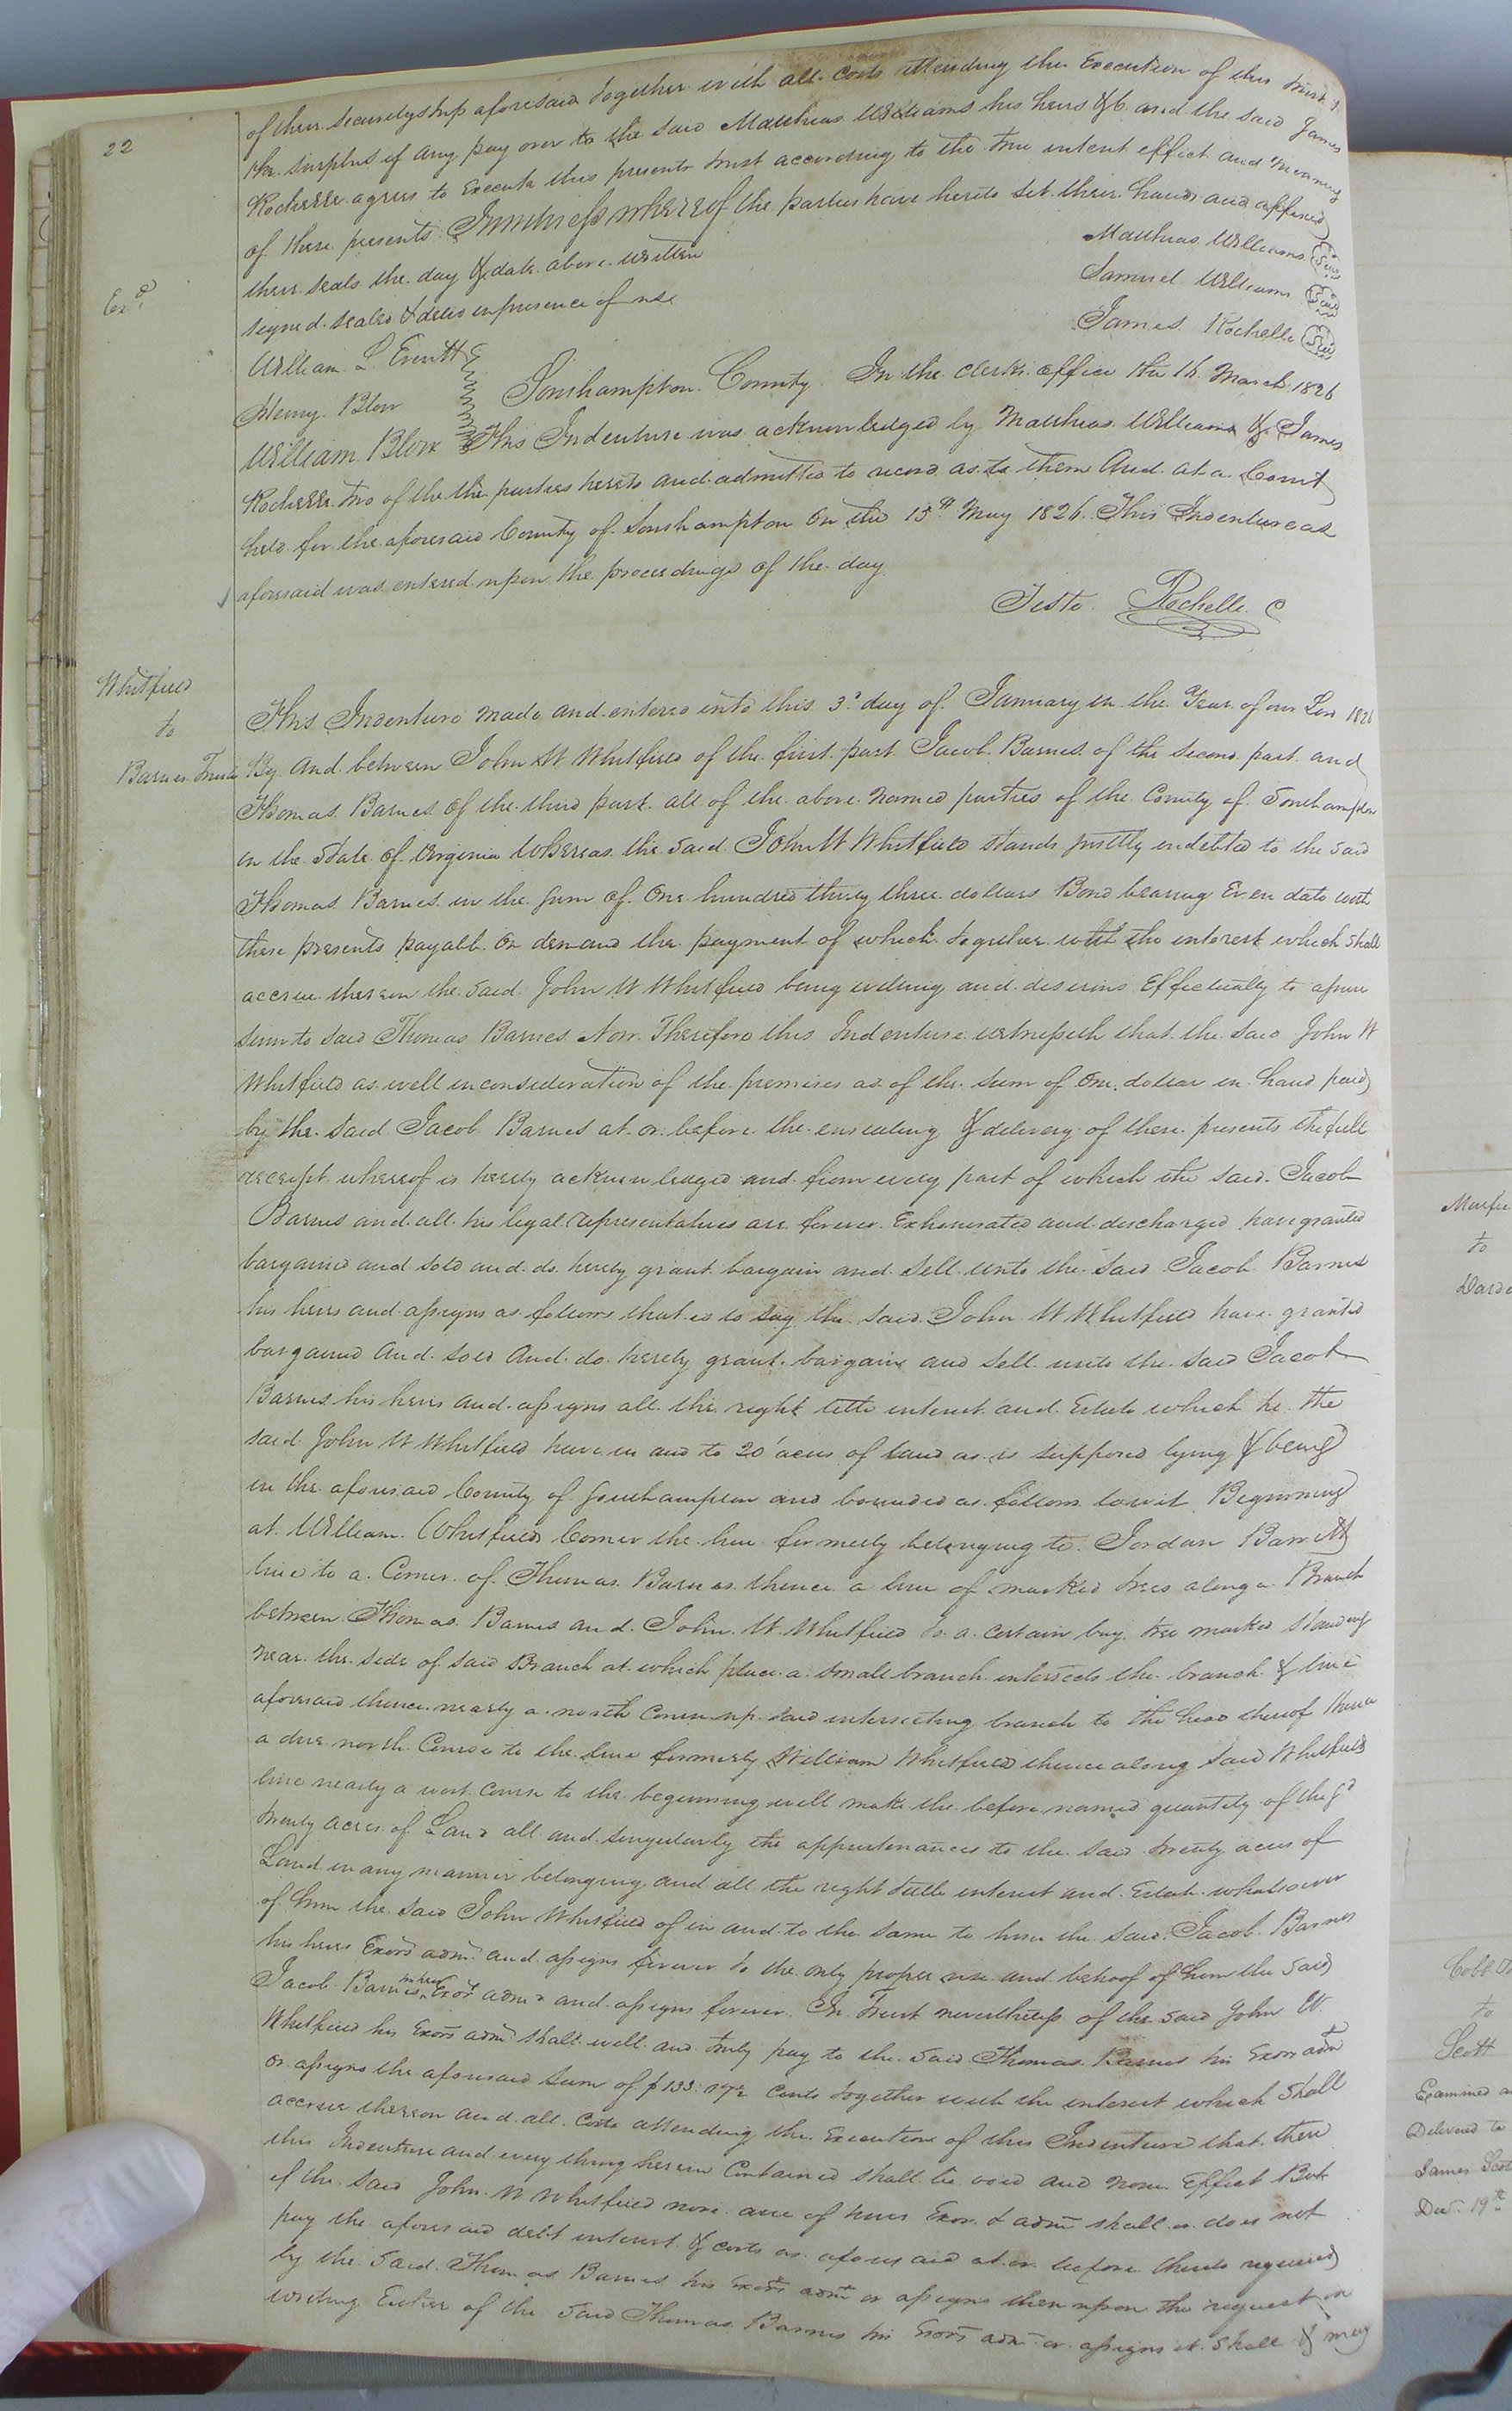 22
of their securityship aforesaid together with all costs attending the Execution of this trust &
the surplus if any pay over to the said Matthias Williams his heirs &c. and the said James
Rochelle agrees to Execute this presents trust according to the true intent effect and meaning
of these presents In witness whereof the parties have hereto set their hands and affixed
their seals the day & date above written
signed sealed & delivd in presence of us
Matthias Williams Seal
Samuel Williams Seal
James Rochelle Seal
Exd
William L Everitt
Henry Blow
William Blow
Southampton County In the clerks office the 16 March 1826
This Indenture was acknowledged by Matthias Williams & James
Rochelle two of the the parties hereto and admitted to record as to them And at a Court
held for the aforesaid County of Southampton On the 15th May 1826. This Indenture as
aforesaid was entered upon the proceedings of the day
Teste. Rochelle C
Whitfield
to
Barnes Trust
This Indenture made and entered into this 3d day of January in the Year of our Lord 1826
By and between John W Whitfield of the first part Jacob Barnes of the second part and
Thomas Barnes of the third part all of the above named parties of the County of Southampton
in the State of Virginia Whereas the said John W Whitfield stands justly indebted to the said
Thomas Barnes in the sum of One hundred thirty three dollars Bond bearing Even date with
these presents payable On demand the payment of which together with the interest which shall
accrue thereon the said John W Whitfield being willing and desirous Effectually to assure
to said Thomas Barnes Now Therefore this Indenture witnesseth that the said John W
Whitfield as well in consideration of the premises as of the sum of One dollar in hand paid
by the said Jacob Barnes at or before the ensealing & delivery of these presents the full
receipt whereof is hereby acknowledged and from every part of which the said Jacob
Barnes and all his legal representatives are forever Exhonerated and discharged have granted
bargained and sold and do hereby grant bargain and sell unto the said Jacob Barnes
his heirs and assigns as follows that is to say the said John W Whitfield have granted
bargained And sold And do hereby grant bargain and sell unto the said Jacob
Barnes his heirs and assigns all the right title interest and Estate which he the
said John W Whitfield have in and to 20 acres of land as is supposed lying & being
in the aforesaid County of Southampton and bounded as follows towit Beginning
at William Whitfields Corner the line formerly belonging to Jordan Barrett
line to a Corner of Thomas Barnes thence a line of marked trees along a Branch
between Thomas Barnes and John W Whitfield to a certain bay tree marked standing
near the side of said Branch at which place a small branch intersects the branch & line
aforesaid thence nearly a north Course up said intersecting branch to the head thereof thence
a due north Course to the line formerly William Whitfield thence along said Whitfields
line nearly a west course to the beginning will make the before named quantity of the sd
twenty acres of Land all and singularly the appurtenances to the said twenty acres of
Land in any manner belonging and all the right title interest and Estate whatsoever
of him the said John Whitfield of in and to the same to him the said Jacob Barnes
his heirs Exors admr and assigns forever to the only proper use and behoof of him the said
Jacob Barnes his heirs Exor admr and assigns forever In Trust nevertheless of the said John W.
Whitfield his Exors admr shall well and truly pay to the said Thomas Barnes his Exors admr
or assigns the aforesaid sum of $133.17½ Cents together with the interest which shall
accrue thereon and all Costs attending the Execution of this Indenture that then
this Indenture and every thing herein Contained shall be void and none Effect But
if the said John W Whitfield nor any of heirs Exor & admr shall or does not
pay the aforesaid debt interest & costs as aforesaid at or before thereto required
by the said Thomas Barnes his Exors admr or assigns then upon the request in
writing Either of the said Thomas Barnes his Exors admr or assigns it shall & may
to
Cobb
to
Scott
Examined
Delivered to
James
Decr 19th